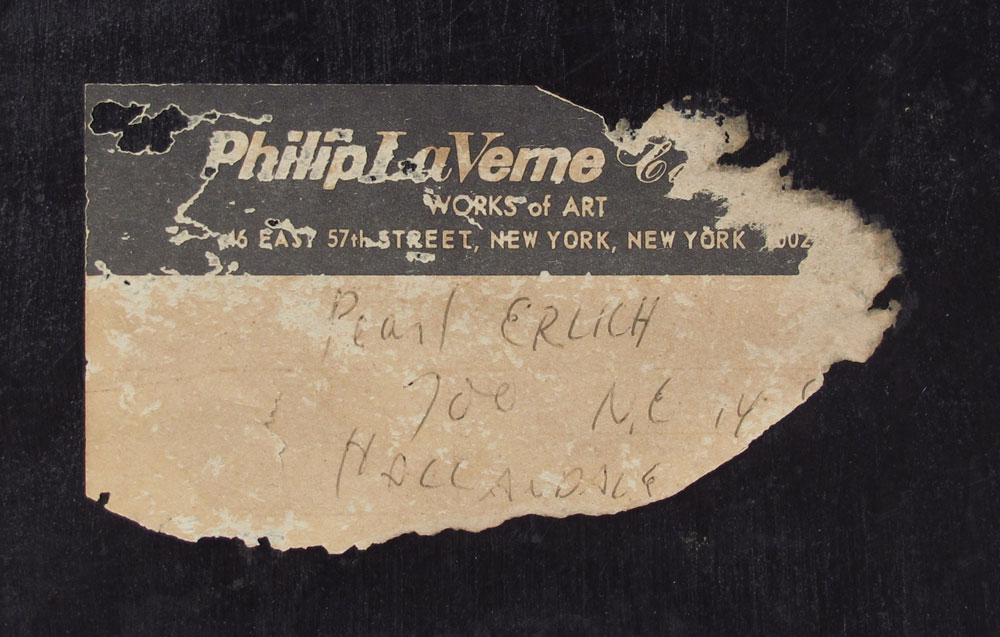 Philip LaVerne
WORKS of ART
46 EAST 57th STREET, NEW YORK, NEW YORK
Pearl ERLICH
N.E 14
HALLANDALE